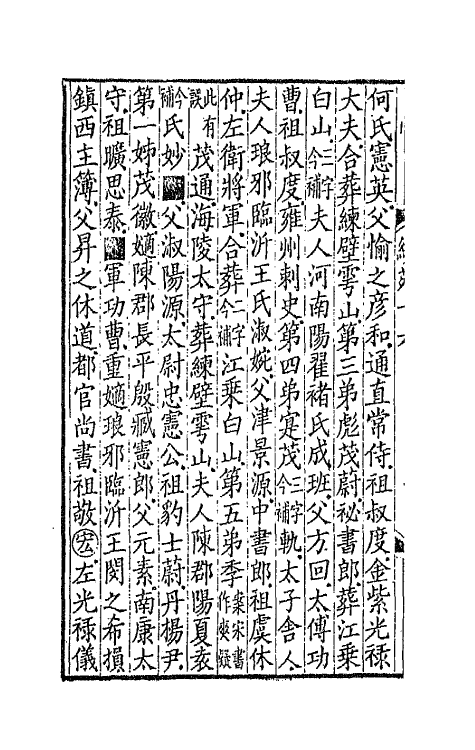 何氏憲英父愉之彦和通直常侍祖叔度金紫光祿
大夫合葬練壁雩山第三弟彪茂蔚祕書郎葬江乘
白山二字今補夫人河南陽翟褚氏成班父方回太傅功
曹祖叔度雍州刺史第四弟寔茂二字今補軌太子舍人
夫人琅邪臨沂王氏淑婉父津景源中書郎祖虞休
仲左衛將軍合葬二字今補江乘白山第五弟季案宋書作爽疑
此有誤茂通海陵太守葬練壁雩山夫人陳郡陽夏袁
今補氏妙■父淑陽源太尉忠憲公祖豹士蔚丹楊尹
第一姊茂徽嫡陳郡長平殷臧憲郎父元素南康太
守祖曠思泰■軍功曹重嫡琅邪臨沂王閔之希損
鎮西主簿父昇之休道都官尚書祖敬宏左光祿儀